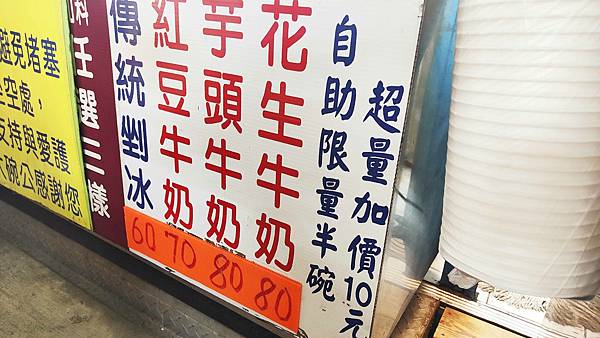 避免堵塞
空處，
持與愛護
碗公感謝您
料任選三樣
傳統剉冰
紅豆牛奶
芋頭牛奶
花生牛奶
自助限量半碗
超量加價10元
60 70 80 80